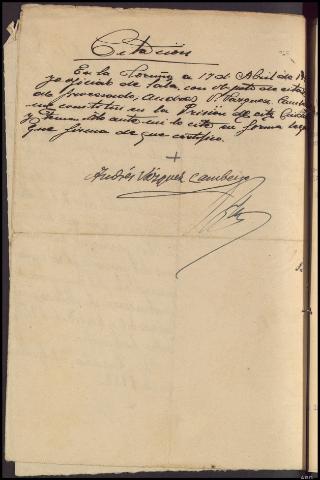 Citación
En la Coruña a 17 de Abril de
yo oficial de Sala, con objeto de citar
al procesado, Andrés Vázquez Cambeiro
me constituí en la Prisión de esta
y teniéndole ante mi le cité en forma
que firma de que certifico.
+
Andrés Vázquez Cambeiro